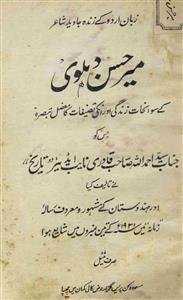 زبان اردو کے زندہ جاوید شاعر
میر حسن دہلوی
کے سوانحات زندگی اور انکی تصنیفات کا مفصل تبصرہ
جس کو
جناب سید احمد اللہ صاحب قادری نایب اڈیٹر "تاریخ"
نے تالیف کیا
اور ہندوستان کے مشہور و معروف رسالہ
زمانہ میں ۱۹۳۱ کے تین نمبروں میں شایع ہوا